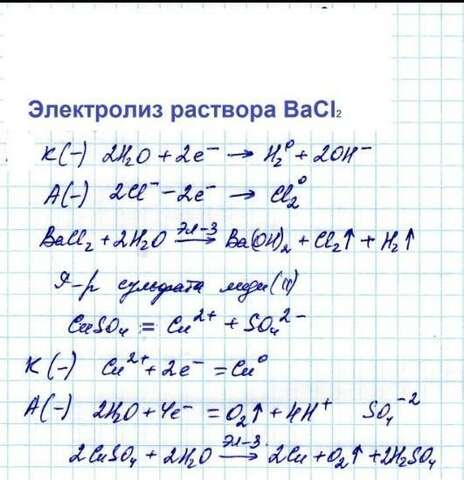 Электролиз раствора BaCl₂
K(-) 2H₂O + 2e⁻ → H₂⁰ + 2OH⁻
A(-) 2Cl⁻ - 2e⁻ → Cl₂⁰
BaCl₂ + 2H₂O эл-з → Ba(OH)₂ + Cl₂↑ + H₂↑
Я-р сульфата меди (II)
CuSO₄ = Cu²⁺ + SO₄²⁻
K(-) Cu²⁺ + 2e⁻ = Cu⁰
A(-) 2H₂O + 4e⁻ = O₂↑ + 4H⁺ SO₄⁻²
2CuSO₄ + 2H₂O эл-з → 2Cu + O₂↑ + 2H₂SO₄